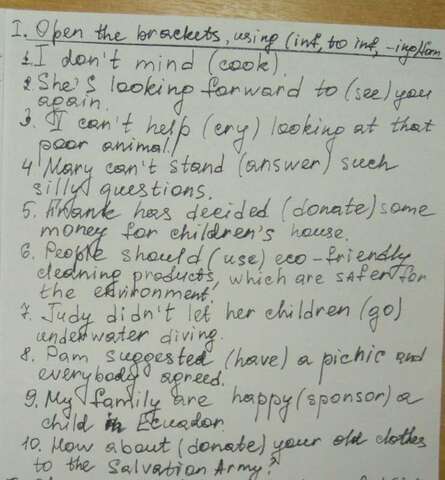 I. Open the brackets, using (inf, to inf, -ing) form
1. I don't mind (cook).
2. She's looking forward to (see) you
again.
3. I can't help (cry) looking at that
poor animal.
4 Mary can't stand (answer) such
silly questions.
5. Frank has decided (donate) some
money for children's house.
6. People should (use) eco-friendly
cleaning products, which are safer for
the environment.
7. Judy didn't let her children (go)
underwater diving.
8. Pam suggested (have) a pichic and
everybody agreed.
9. My family are happy (sponsor) a
child in Ecuador.
10. How about (donate) your old clothes
to the Salvation Army?